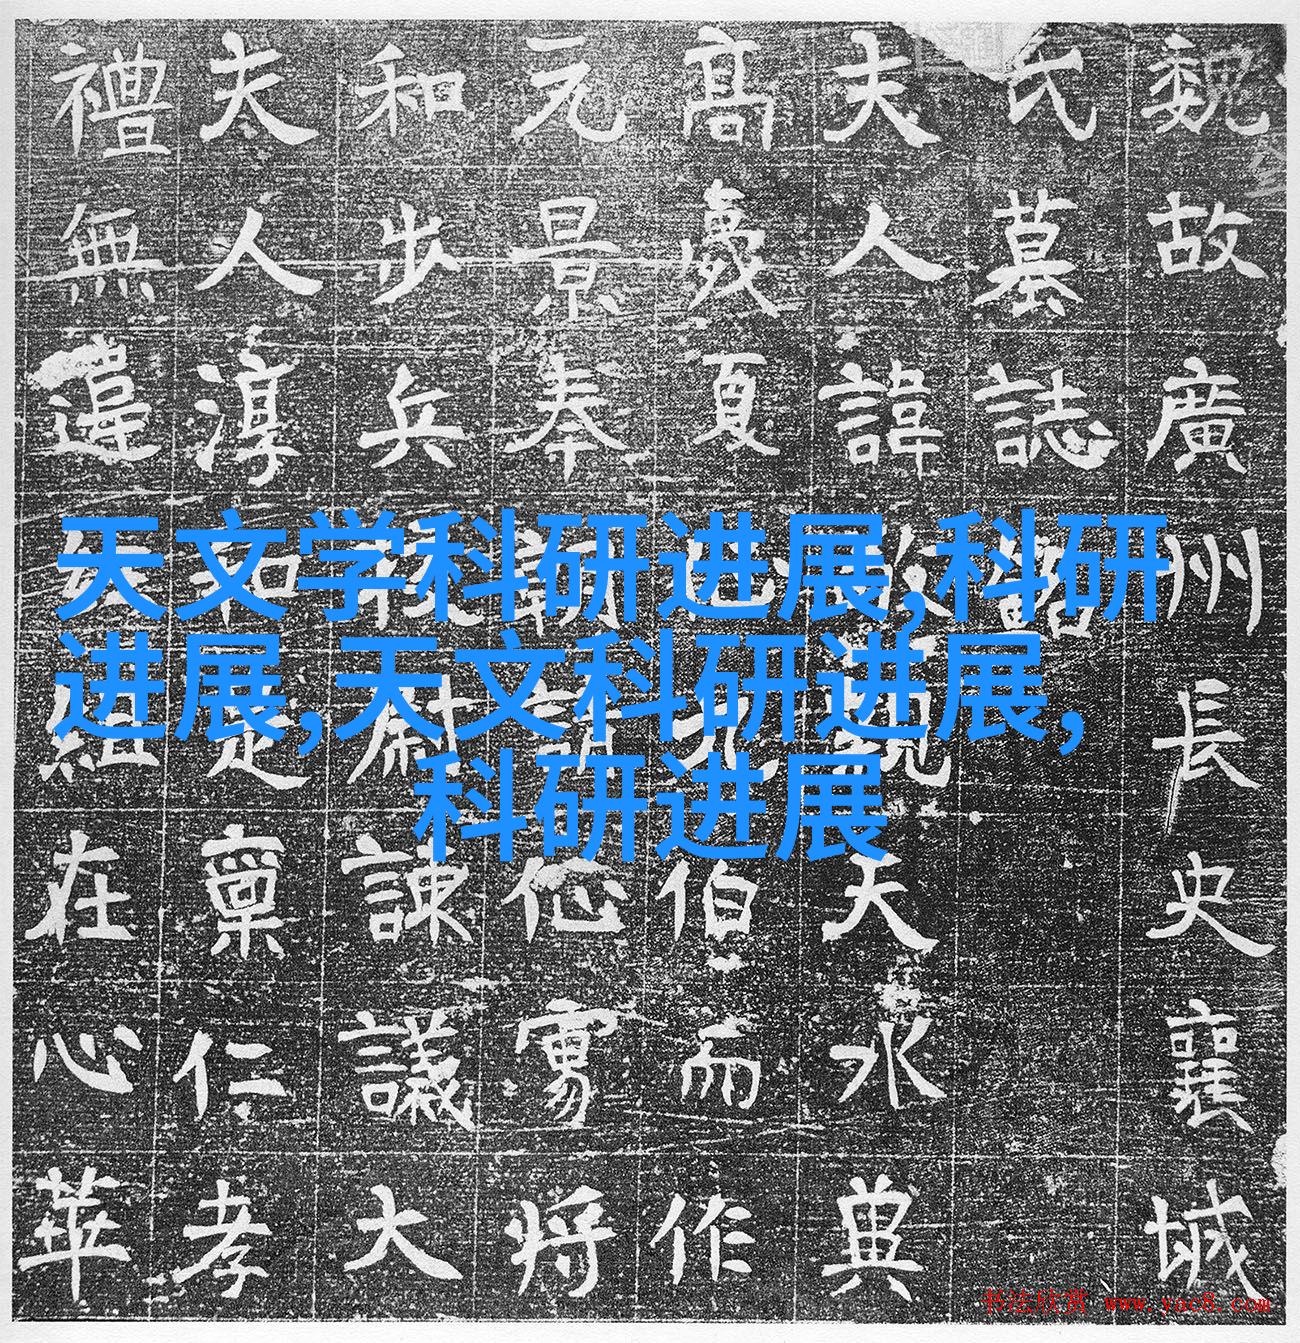 天文学科研进展,科研
进展,天文科研进展,
科研进展
魏故廣州長史襄城
氏墓誌
夫人諱天水典
高夏九伯而作
元景奉朝請将
和步兵校尉諫議大
夫人淳和稟仁孝
禮無違組在心華
书法欣赏 www.yac8.com